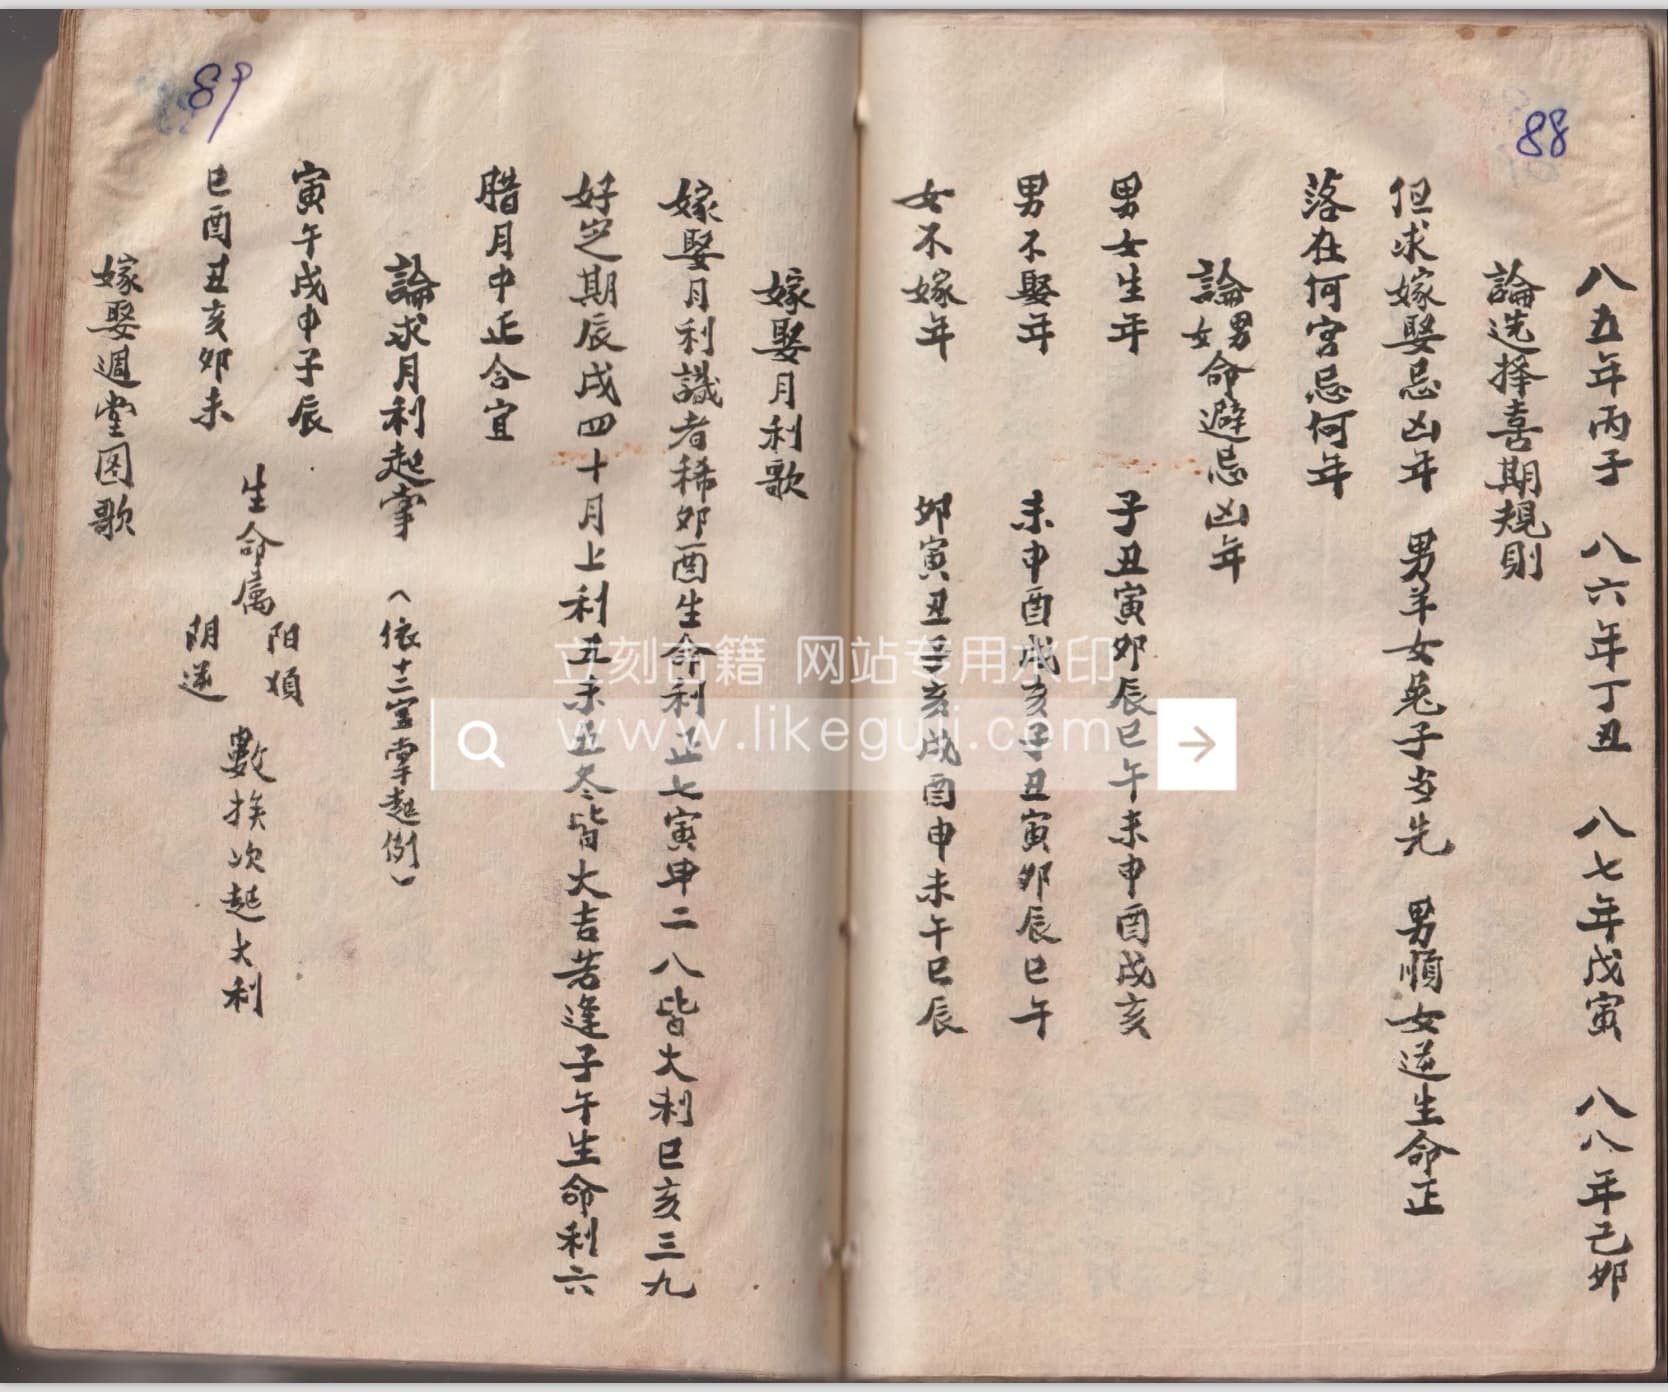 88
八五年丙子 八六年丁丑 八七年戊寅 八八年己卯
論选择喜期規則
但求嫁娶忌凶年 男羊女兎子当先 男順女逆生命正
落在何宮忌何年
論男女命避忌凶年
男女生年 子丑寅卯辰巳午未申酉戌亥
男不娶年 未申酉戌亥子丑寅卯辰巳午
女不嫁年 卯寅丑子亥戌酉申未午巳辰
89
嫁娶月利歌
嫁娶月利識者稀卯酉生命利正七寅申二八皆大利巳亥三九
好定期辰戌四十月上利丑未五冬皆大吉若逢子午生命利六
腊月中正合宜
論求月利起掌 (依十二宮掌起例)
寅午戌申子辰
巳酉丑亥卯未
生命属
阳順
阴逆
數挨次起大利
嫁娶週堂图歌
立刻古籍 网站专用水印
www.likeguji.com